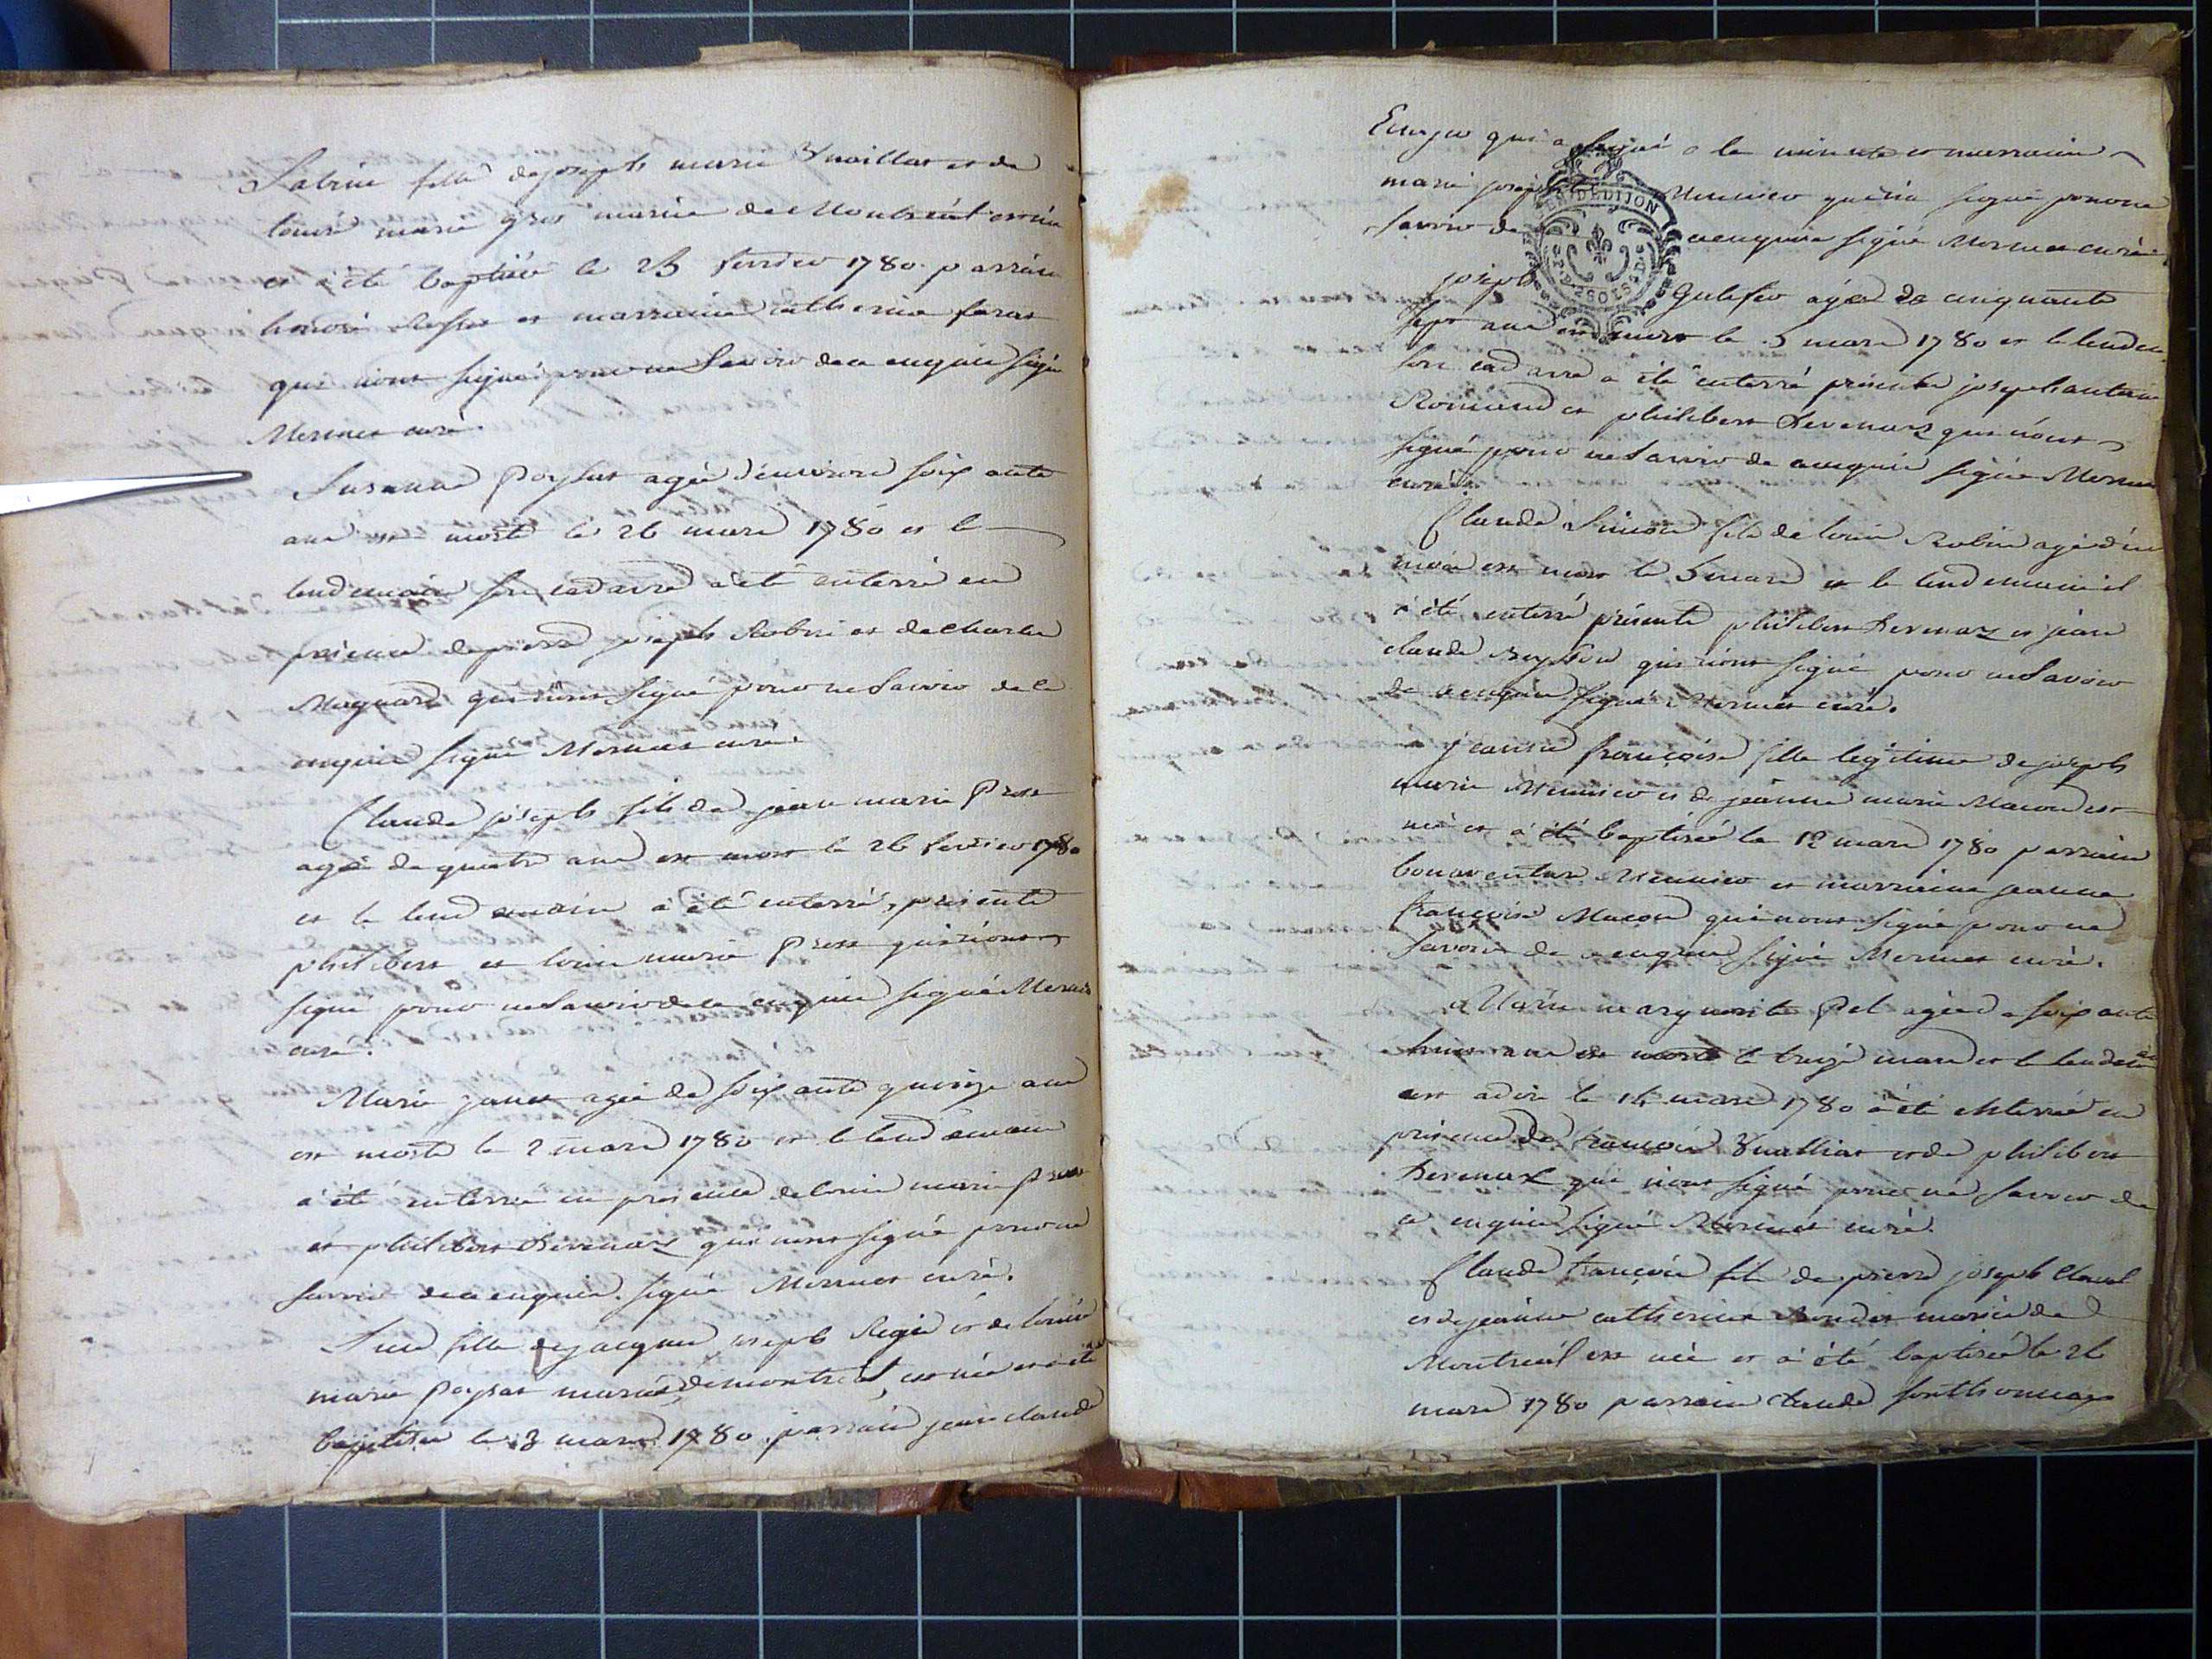 Sabine fille de joseph marie Vuaillat et de
louise marie gros mariés de Montreal est née
et a été baptisée le 25 fevrier 1780. parrain
honoré et marraine catherine faras
qui n'ont signé pour ne savoir de ce enquis signé
Mermet curé.
Susanne Poysat agée d'environ soixante
ans est morte le 26 mars 1780 et le
lendemain son cadavre a été enterré en
presence de pierre joseph Robin et de charles
Moynard qui n'ont signé pour ne savoir de ce
enquis signé Mermet curé.
Claude joseph fils de jean marie Prost
agé de quatre ans est mort le 26 fevrier 1780
et le lendemain a été enterré, présents
philibert et louis marie Prost qui n'ont
signé pour ne savoir de ce enquis signé Mermet
curé.
Marie janet agée de soixante quinze ans
est morte le 2 mars 1780 et le lendemain
a été enterrée en presence de louis marie prost
et philibert Devenaz qui n'ont signé pour ne
savoir de ce enquis. signé Mermet curé.
fille de jacques joseph Regis et de louise
marie Poysat mariés de montreal, est née et a été
baptisée le 3 mars 1780. parrain jean claude
qui a signé a la minute et marraine
marie josephte Meunier qui n'a signé pour ne
savoir de ce enquise signé Mermet curé.
GEN. DE DIJON
joseph agé de cinquante
sept ans est mort le 5 mars 1780 et le lendem
son cadavre a été enterré présents joseph antoine
Romand et philibert Devenaz qui n'ont
signé pour ne savoir de ce enquis signé Mermet
curé.
Claude Simon fils de louis Robin agé d'un
mois est mort le 5 mars et le lendemain il
a été enterré présents philibert Devenaz et jean
claude qui n'ont signé pour ne savoir
de ce enquis signé Mermet curé.
jeanne françoise fille legitime de joseph
marie Meunier et de jeanne marie Macon est
née et a été baptisée le 12 mars 1780 parrain
bonaventure Meunier et marraine jeanne
françoise Macon qui n'ont signé pour ne
savoir de ce enquis signé Mermet curé.
Marie margueritte Pel agée de soixante
huit ans est morte le treize mars et le lendem
est a dire le 14 mars 1780 a été enterrée en
presence de françois Vuailliat et de philibert
Devenaz qui n'ont signé pour ne savoir de
ce enquis signé Mermet curé.
Claude françois fils de pierre joseph
et de jeanne catherine mariés de
Montreal est né et a été baptisé le 26
mars 1780 parrain claude